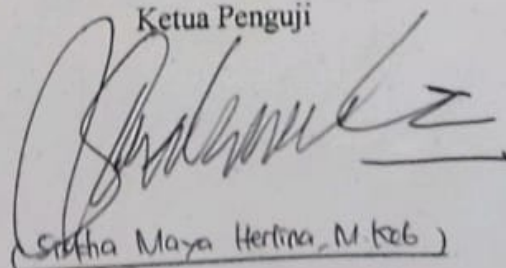 Ketua Penguji
Maya Herlina, M.Keb )